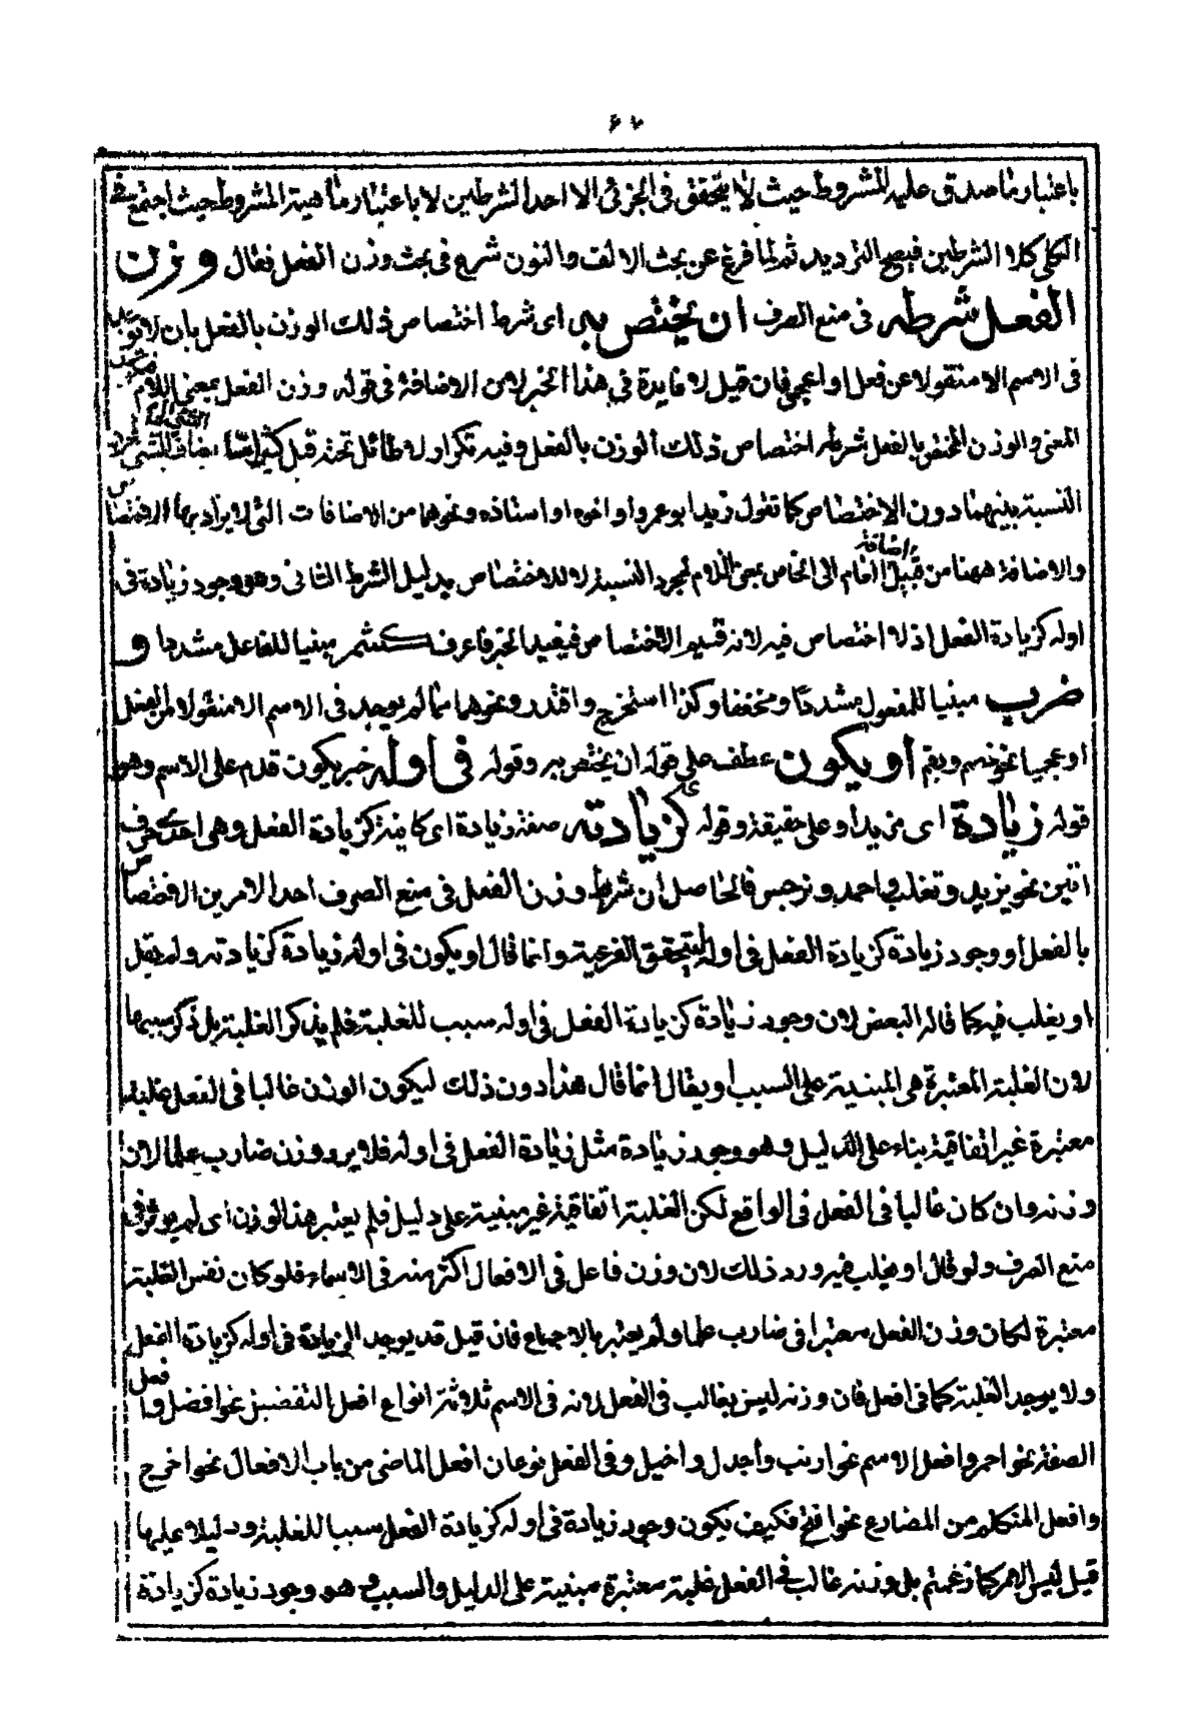 باعتبار ما صدق عليه المشروط حيث لا يتحقق فى الجزئى الا احد الشرطين لا باعتبار ماهية المشروط حيث اجتمع فى
الكلى كلا الشرطين فيصح الترديد ثم لما فرغ عن بحث الالف والنون شرع فى بحث وزن الفعل فقال وزن
الفعل شرطه فى منع الصرف ان يختص به اى شرط اختصاص ذلك الوزن بالفعل بان لا يوجد
فى الاسم الا منقولا عن فعل او اعجمى فان قيل لا فايدة فى هذا الخبر لان الاضافة فى قوله وزن الفعل بمعنى اللام
المعنى والوزن المختص بالفعل شرطه اختصاص ذلك الوزن بالفعل وفيه تكرار لا طائل تحته قيل كثيرا ما يضاف الشئ الى الشئ
النسبة بينهما دون الاختصاص كما تقول زيد ابو عمرو او اخوه او استاذه ونحوهما من الاضافات التى لا يراد بها الاختصاص
والاضافة ههنا من قبيل اضافة العام الى الخاص بمعنى اللام لمجرد النسبة لا للاختصاص بدليل الشرط الثانى وهو وجود زيادة فى
اوله كزيادة الفعل اذ لا اختصاص فيه لانه قسيم الاختصاص فيفيد الخبر فاعرف كشمر مبنيا للفاعل مشددا و
ضرب مبنيا للمفعول مشددا ومخففا وكذا استخرج واقتدر ونحوهما مما لم يوجد فى الاسم الا منقولا من الفعل
او عجميا نحو شلم وبقم او يكون عطف على قوله ان يختص به وقوله فى اوله خبر يكون قدم على الاسم وهو
قوله زيادة اى مزيد او على حقيقة وقوله كزيادته صفة زيادة اى كاينة كزيادة الفعل وهى احدى حروف
اتين نحو يزيد وتغلب واحمد ونرجس فالحاصل ان شرط وزن الفعل فى منع الصرف احد الامرين الاختصاص
بالفعل او وجود زيادة كزيادة الفعل فى اوله ليتحقق الفرعية وانما قال او يكون فى اوله زيادة كزيادته ولم يقل
او يغلب فيه كما قاله البعض لان وجود زيادة كزيادة الفعل فى اوله سبب للغلبة فلم يذكر الغلبة بل ذكر سببها
لان الغلبة المعتبرة هى المبنية على السبب او يقال انما قال هذا دون ذلك ليكون الوزن غالبا فى الفعل غلبة
معتبرة غير اتفاقية بناء على الدليل وهو وجود زيادة مثل زيادة الفعل فى اوله فلا يرد وزن ضارب علما لان
وزنه وان كان غالبا فى الفعل فى الواقع لكن الغلبة اتفاقية غير مبنية على دليل فلم يعتبر هذا الوزن اى لم يؤثر فى
منع الصرف ولو قال او يغلب فيه ورد ذلك لان وزن فاعل فى الافعال اكثر منه فى الاسماء فلو كان نفس الغلبة
معتبرة لكان وزن الفعل معتبرا فى ضارب علما ولم يعتبر بالاجماع فان قيل قد يوجد الزيادة فى اوله كزيادة الفعل
ولا يوجد الغلبة كما فى افعل فان وزنه ليس بغالب فى الفعل لانه فى الاسم ثلاثة انواع افعل التفضيل نحو افضل وافعل
الصفة نحو احمر وافعل الاسم نحو ارنب وأجدل واخيل وفى الفعل نوعان افعل الماضى من باب الافعال نحو اخرج
وافعل المتكلم من المضارع نحو افتح فكيف يكون وجود زيادة فى اوله كزيادة الفعل سببا للغلبة ودليلا عليها
قيل ليس الامر كما زعمتم بل وزنه غالب فى الفعل غلبة معتبرة مبنية على الدليل والسبب وهو وجود زيادة كزيادة